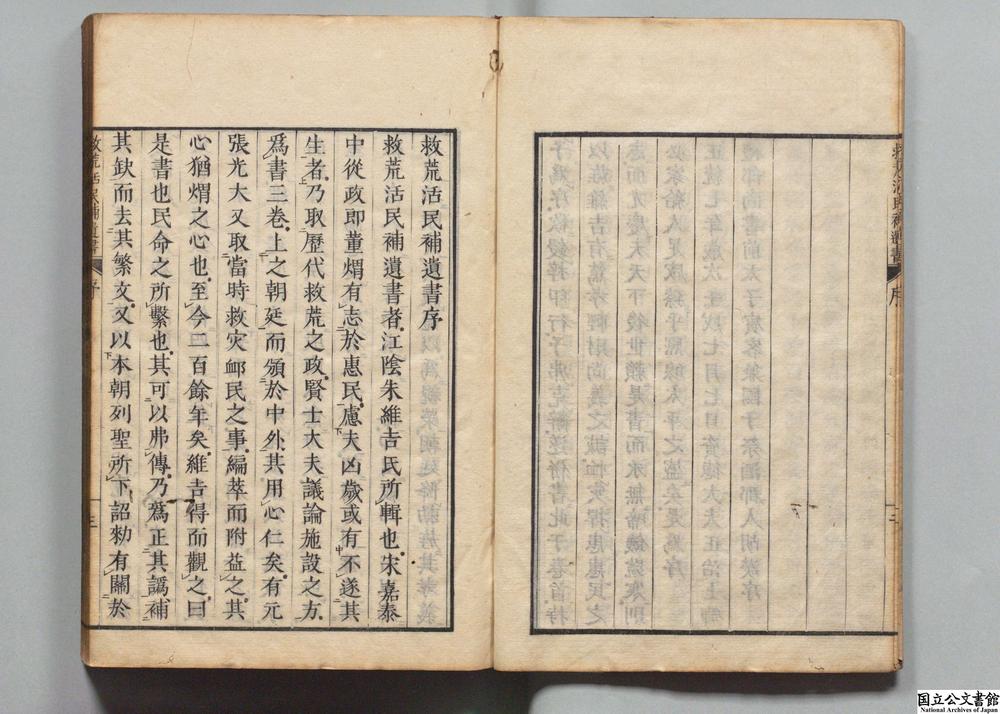 救荒活民補遺書序
救荒活民補遺書者江陰朱維吉氏所輯也宋嘉泰
中從政即董煟有志於惠民慮夫凶歲或有不遂其
生者乃取歷代救荒之政賢士大夫議論施設之方
爲書三卷上之朝廷而頒於中外其用心仁矣有元
張光大又取當時救灾䘏民之事編萃而附益之其
心猶煟之心也至今二百餘年矣維吉得而觀之曰
是書也民命之所繫也其可以弗傳乃爲正其譌補
其缺而去其繁文又以本朝列聖所下詔勑有關於
救荒活民補遺書 序 三
国立公文書館
National Archives of Japan